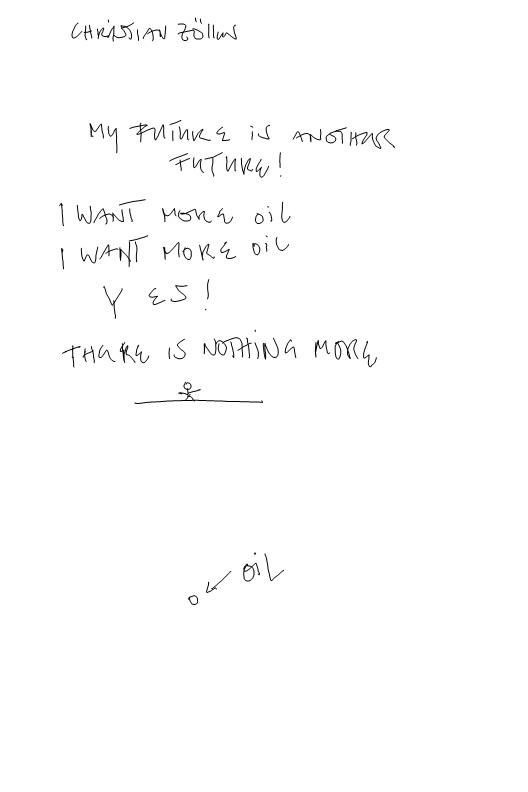 CHRISTIAN ZÖLLNER
MY FUTURE IS ANOTHER
FUTURE!
I WANT MORE OIL
I WANT MORE OIL
YES!
THERE IS NOTHING MORE
OIL